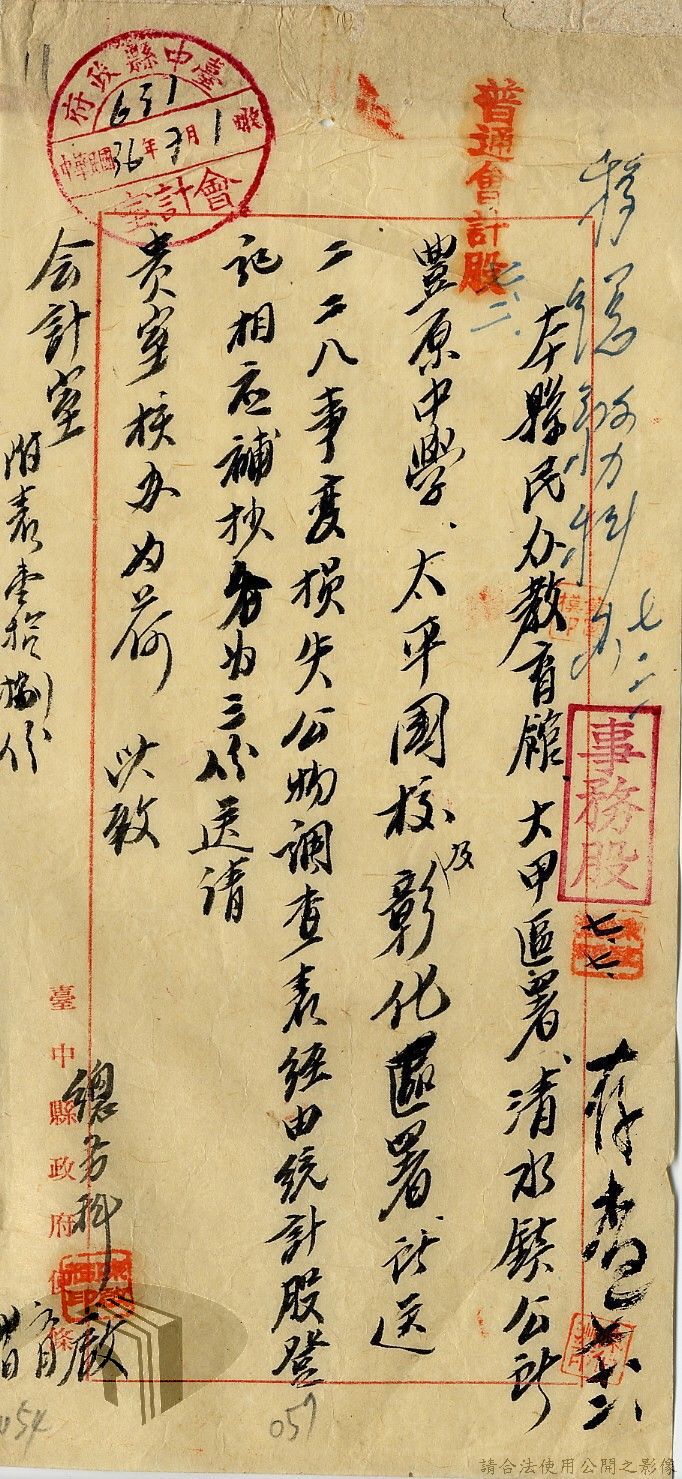 普通會計股
七、二、
移總務科
七、二
本縣民众教育館、大甲區署、清水鎮公所
豐原中學、太平國校及彰化區署、所送
二二八事变損失公物調查表經由統計股登
記相应補抄各为三份送請
貴室核办为荷 此致
会計室
附表壹拾捌份
總务科
啟
事務股
七、六、
存查
臺中縣政府
會計室
中華民國36年7月1
631
臺中縣政府便條
057
054
11
請合法使用公開之影像